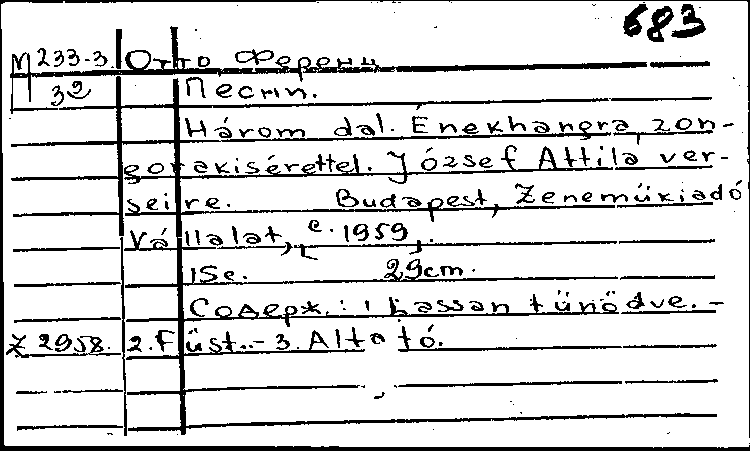 683
М 233-3 Отто Ференц
32 Песни.
Három dal. Énekhangra, zon-
gorakisérettel. József Attila ver-
seire. Budapest, Zeneműkiadó
Vállalat, c. 1959,
15c. 29cm.
Содерж.: 1 Lassan tünödve. -
Z 2958. 2. Füst. - 3. Altató.